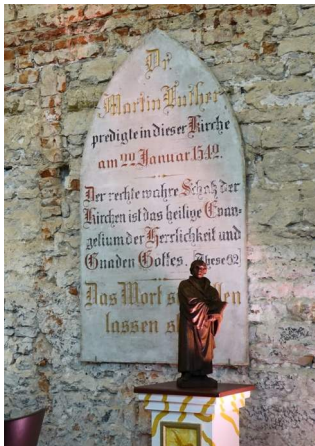 Dr
Martin Luther
predigte in dieser Kirche
am 22 Januar 1540.
Der rechte wahre Schatz der
Kirchen ist das heilige Evan-
gelium der Herrlichkeit und
Gnaden Gottes.
Das Wort
lassen